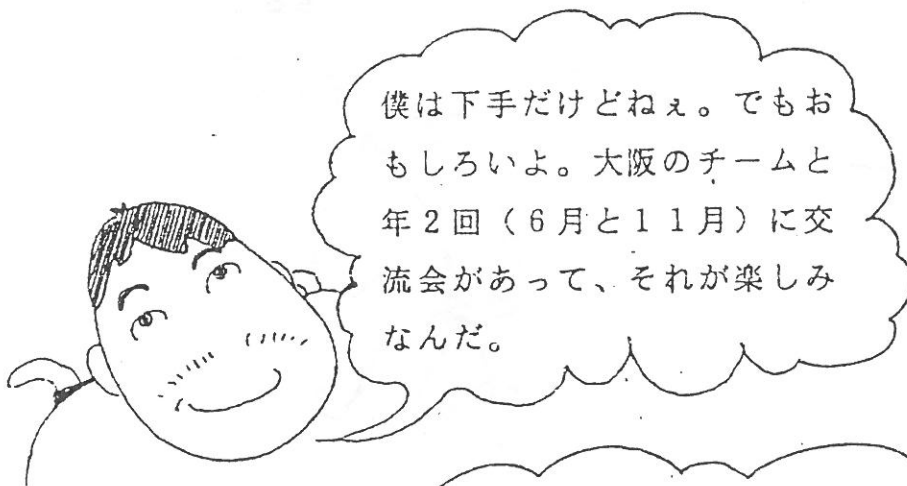 僕は下手だけどねぇ。でもお
もしろいよ。大阪のチームと
年2回（6月と11月）に交
流会があって、それが楽しみ
なんだ。